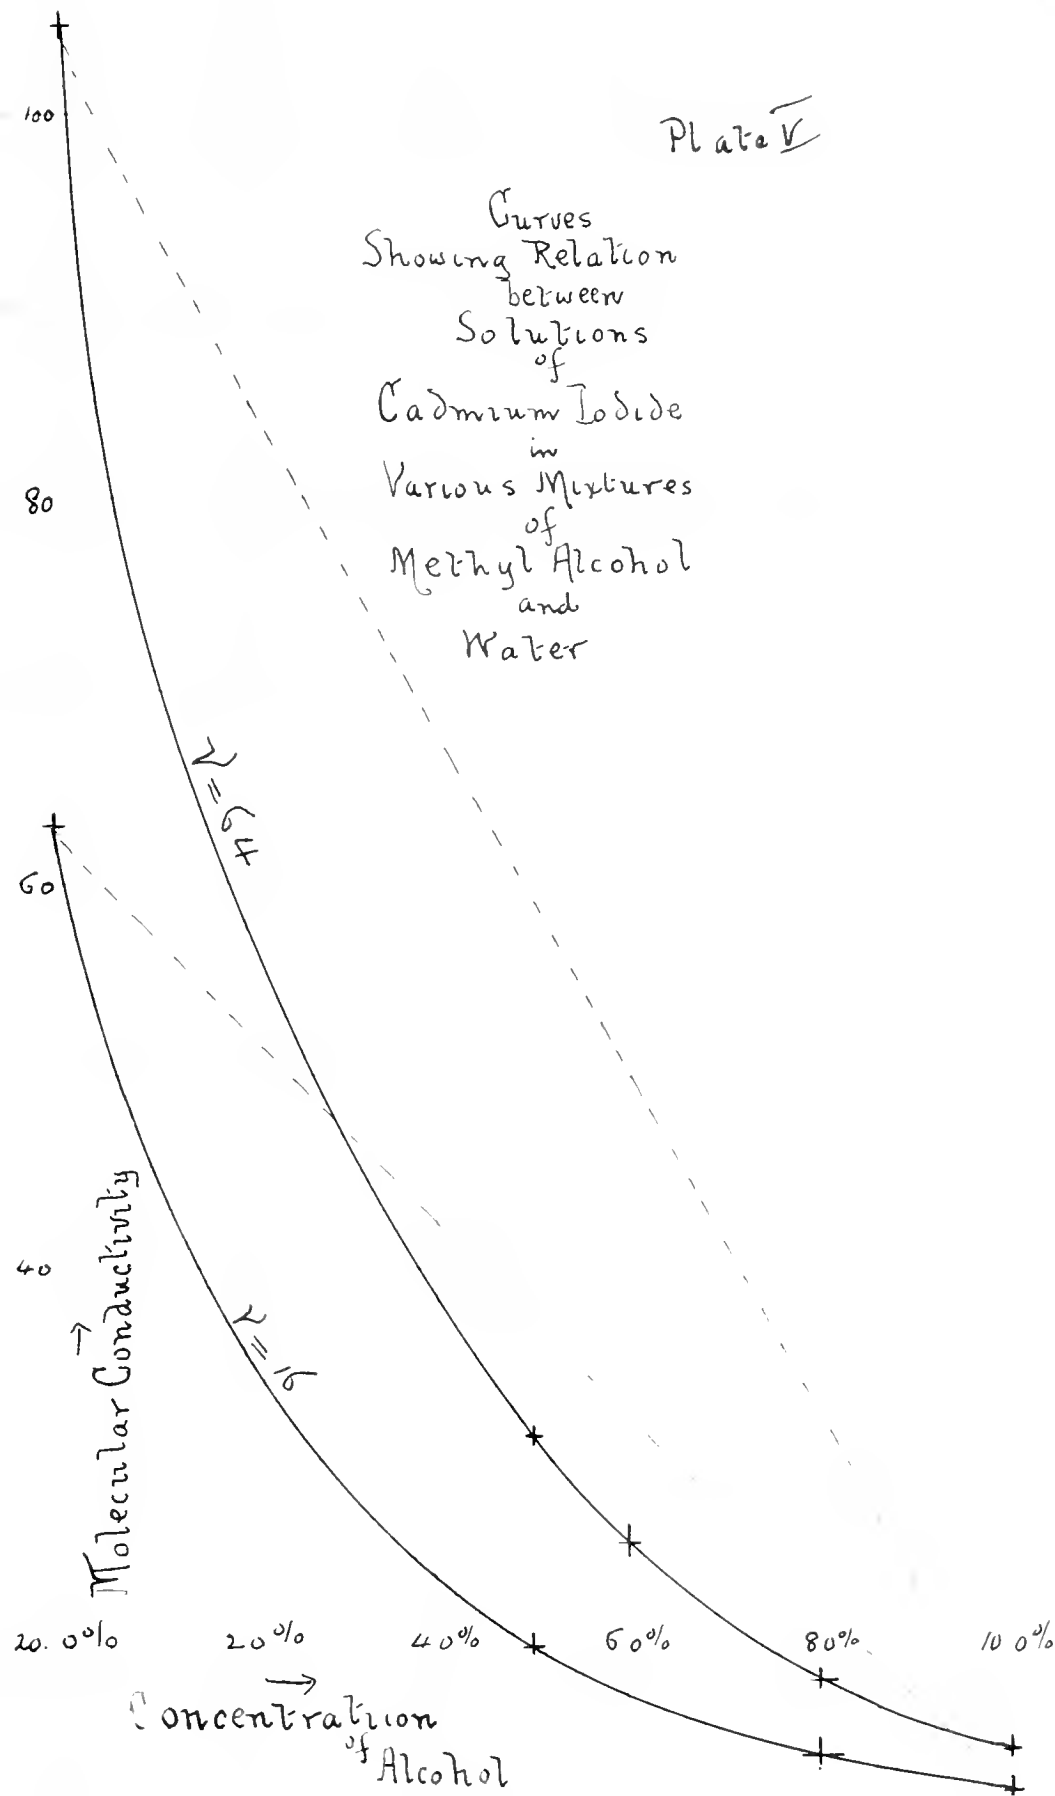 Plate V
Curves
Showing Relation
between
Solutions
of
Cadmium Iodide
in
Various Mixtures
of
Methyl Alcohol
and
Water
100
80
60
40
20. 0% 20% 40% 60% 80% 100%
ν = 64
ν = 16
Molecular Conductivity →
→
Concentratiion
of
Alcohol